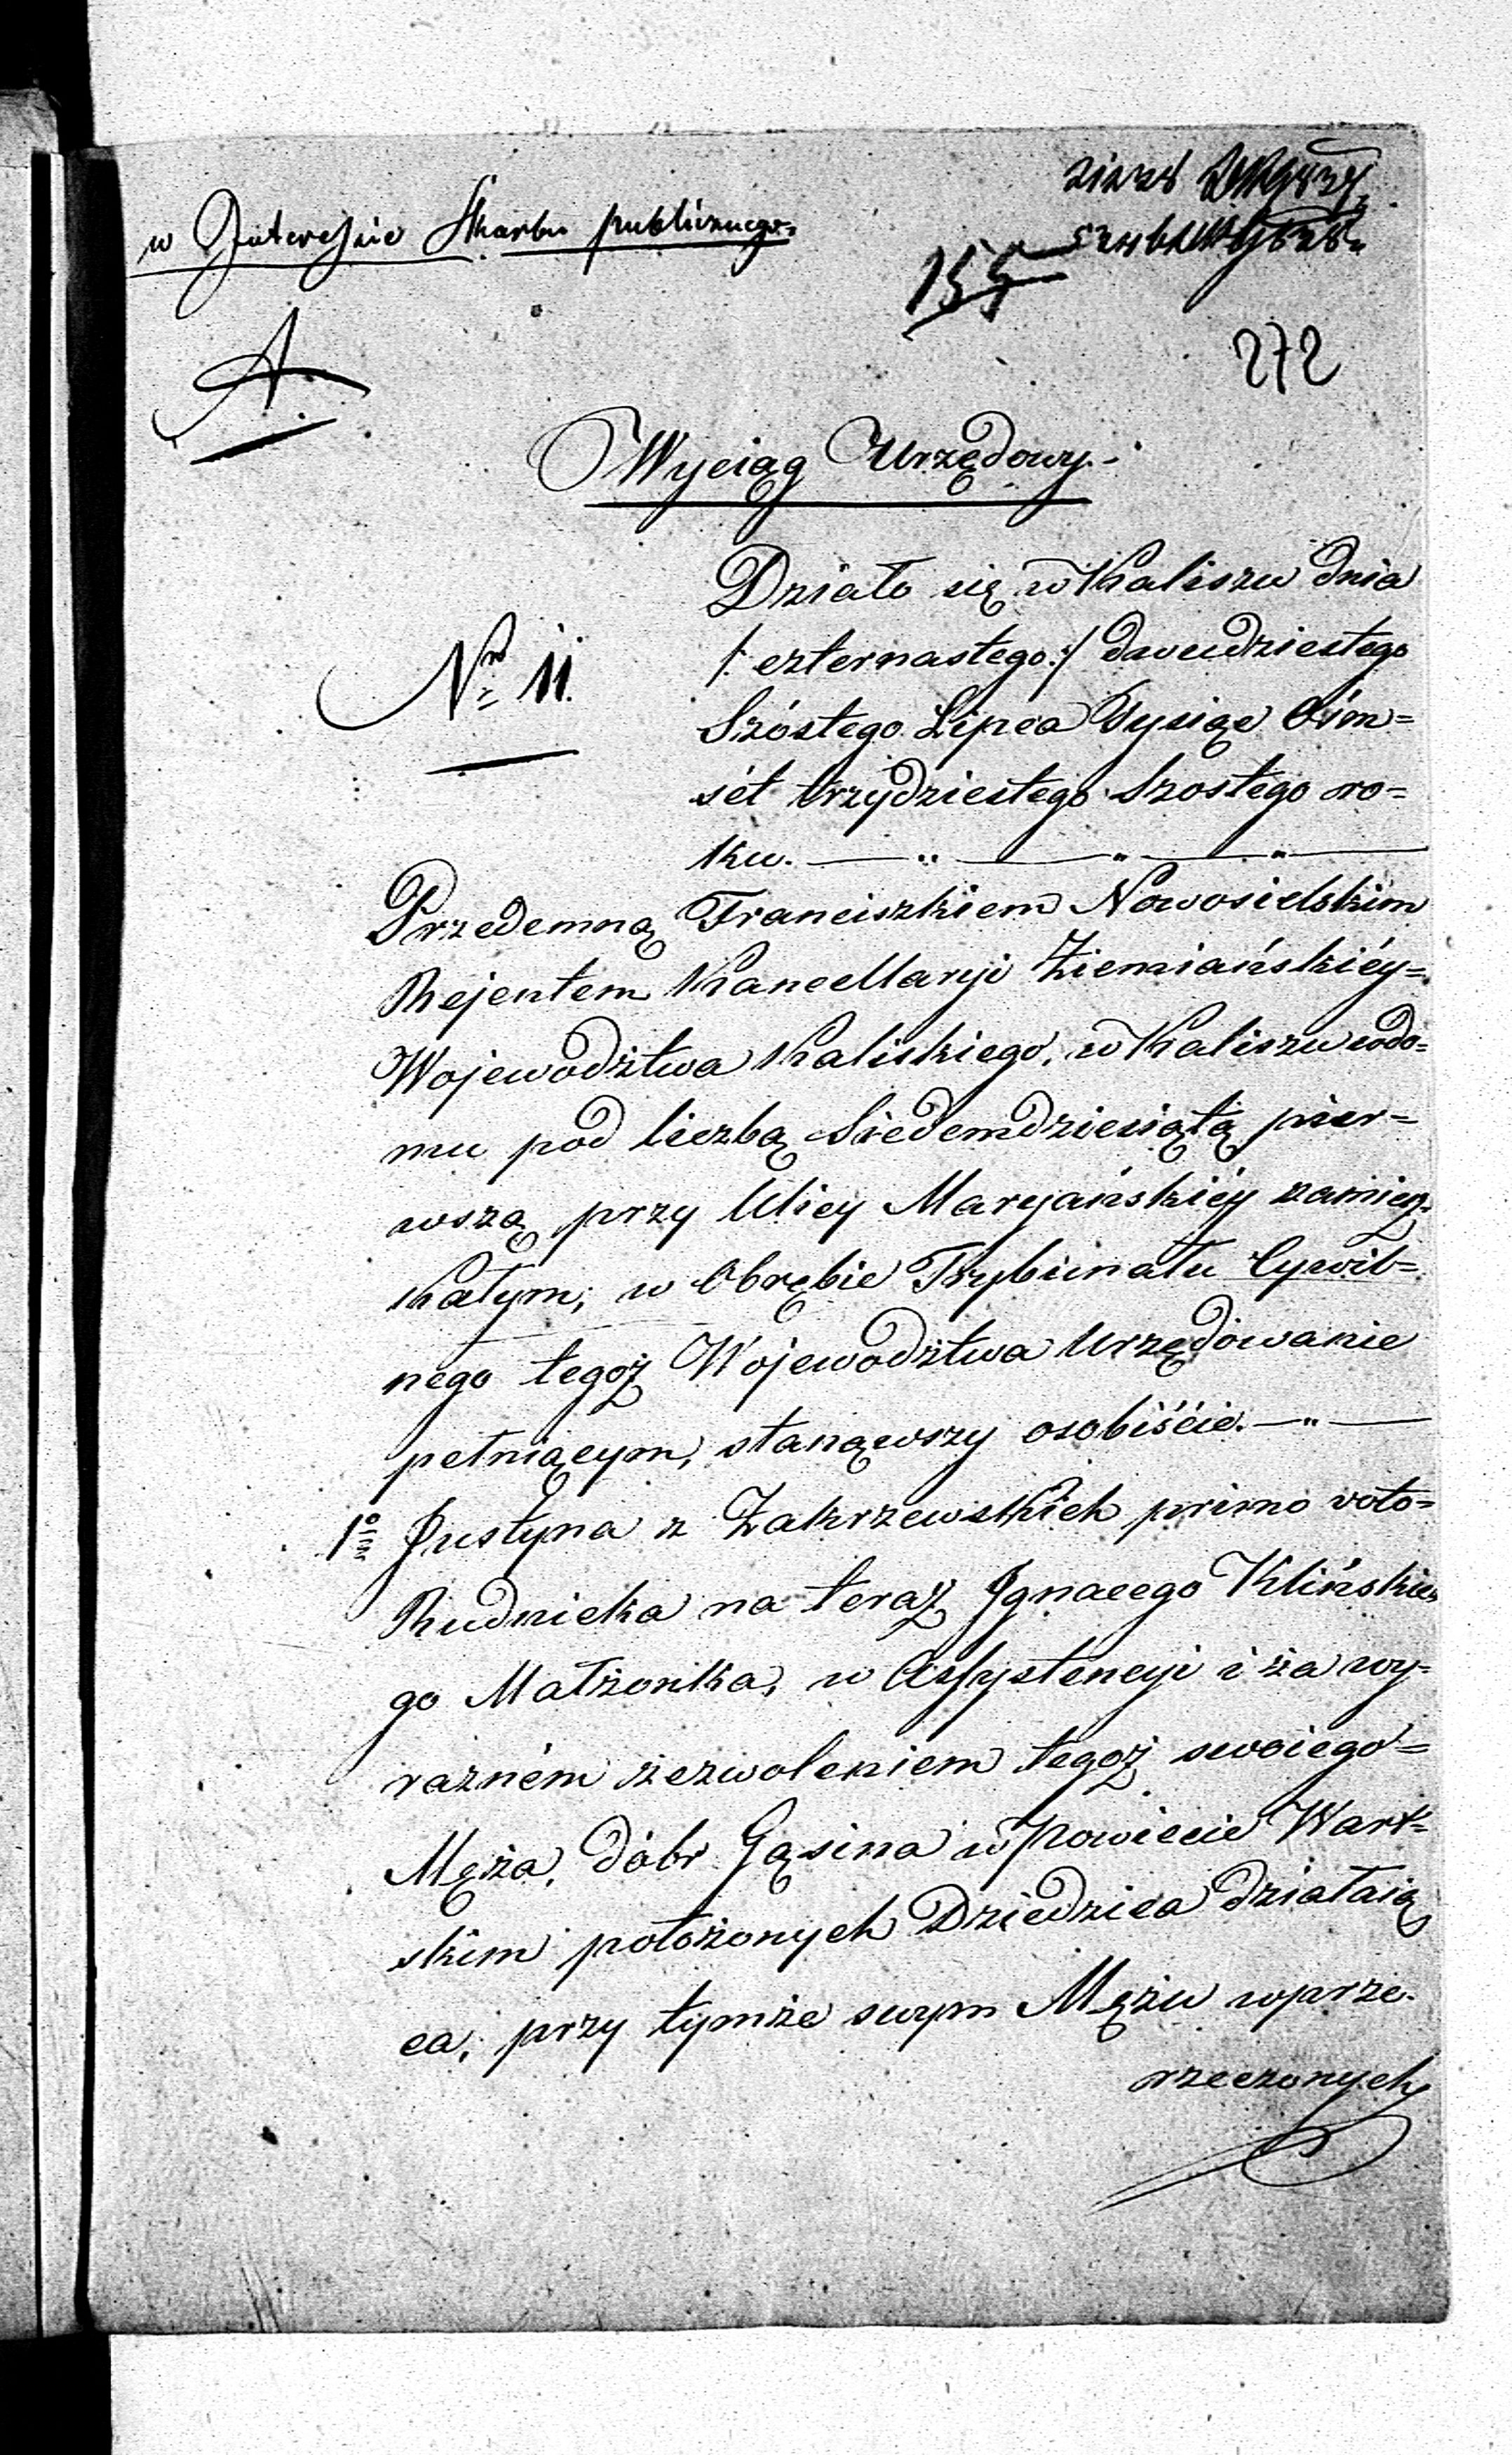 w Interessie Skarbu publicznego=
155
272
A
Wyciąg Urzędowy.-
Działo się w Kaliszu dnia
Nro 11.
/: czternastego :/ dwudziestego
Szóstego Lipca Tysiąc Ośm=
sét trzydziestego Szostego ro=
ku. — „ — „ — „ —
Przedemną Franciszkiem Nowosielskim
Rejentem Kancellaryi Ziemiańskiéy=
Województwa Kaliskiego, w Kaliszu wdo=
mu pod liczbą Siedemdziesiątą pier=
wszą przy Ulicy Maryańskiéy zamiesz=
kałym; w Obrębie Trybunału Cywil=
nego tegoż Województwa Urzędowanie
pełniącym, stanąwszy osobiście. — „ —
1o Justyna z Zakrzewskich primo voto=
Rudnicka na teraz Ignacego Klińskie=
go Małżonka, w Assystencyi i za wy=
raźném zezwoleniem tegoż swoiego=
Męża, dóbr Gąsina w Powiecie Wart=
skim położonych Dziedzica działaią
ca, przy tymże swym Mężu wprze=
rzeczonych